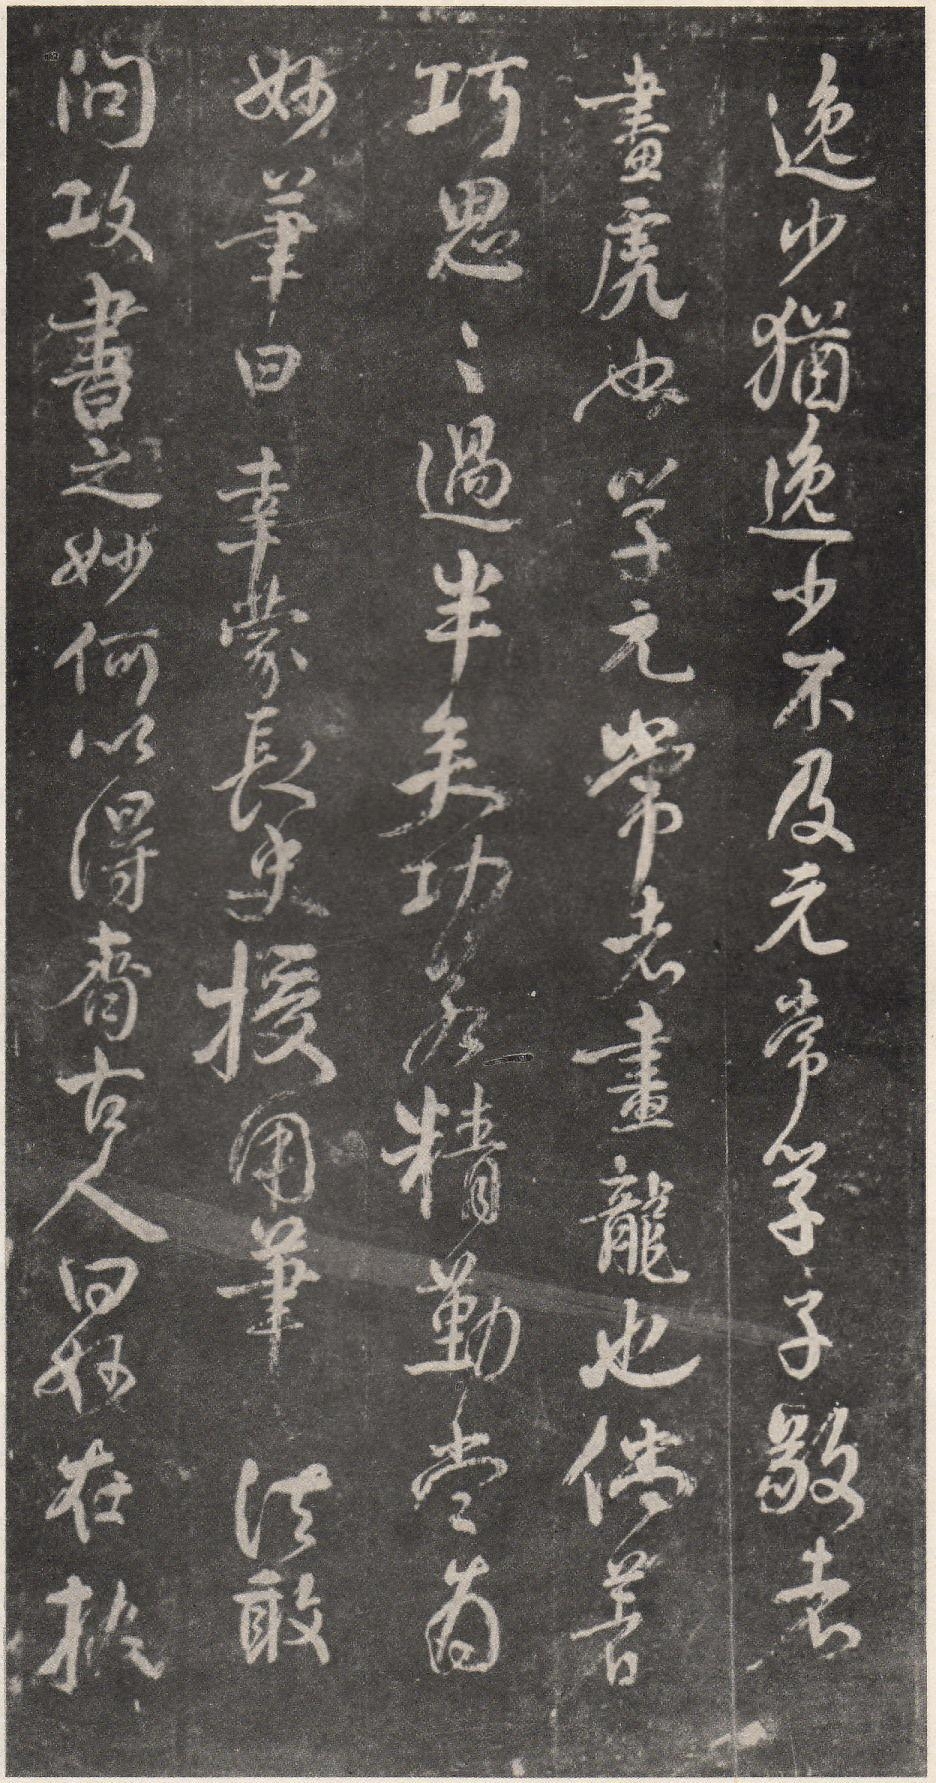 逸少猶逸少不及元常學子敬者
畫虎也學元常者畫龍也倘善
巧思ミ過半矣功若精勤當為
妙筆曰幸蒙長史授用筆法敢
問攻書之妙何以得齊古人曰妙在執